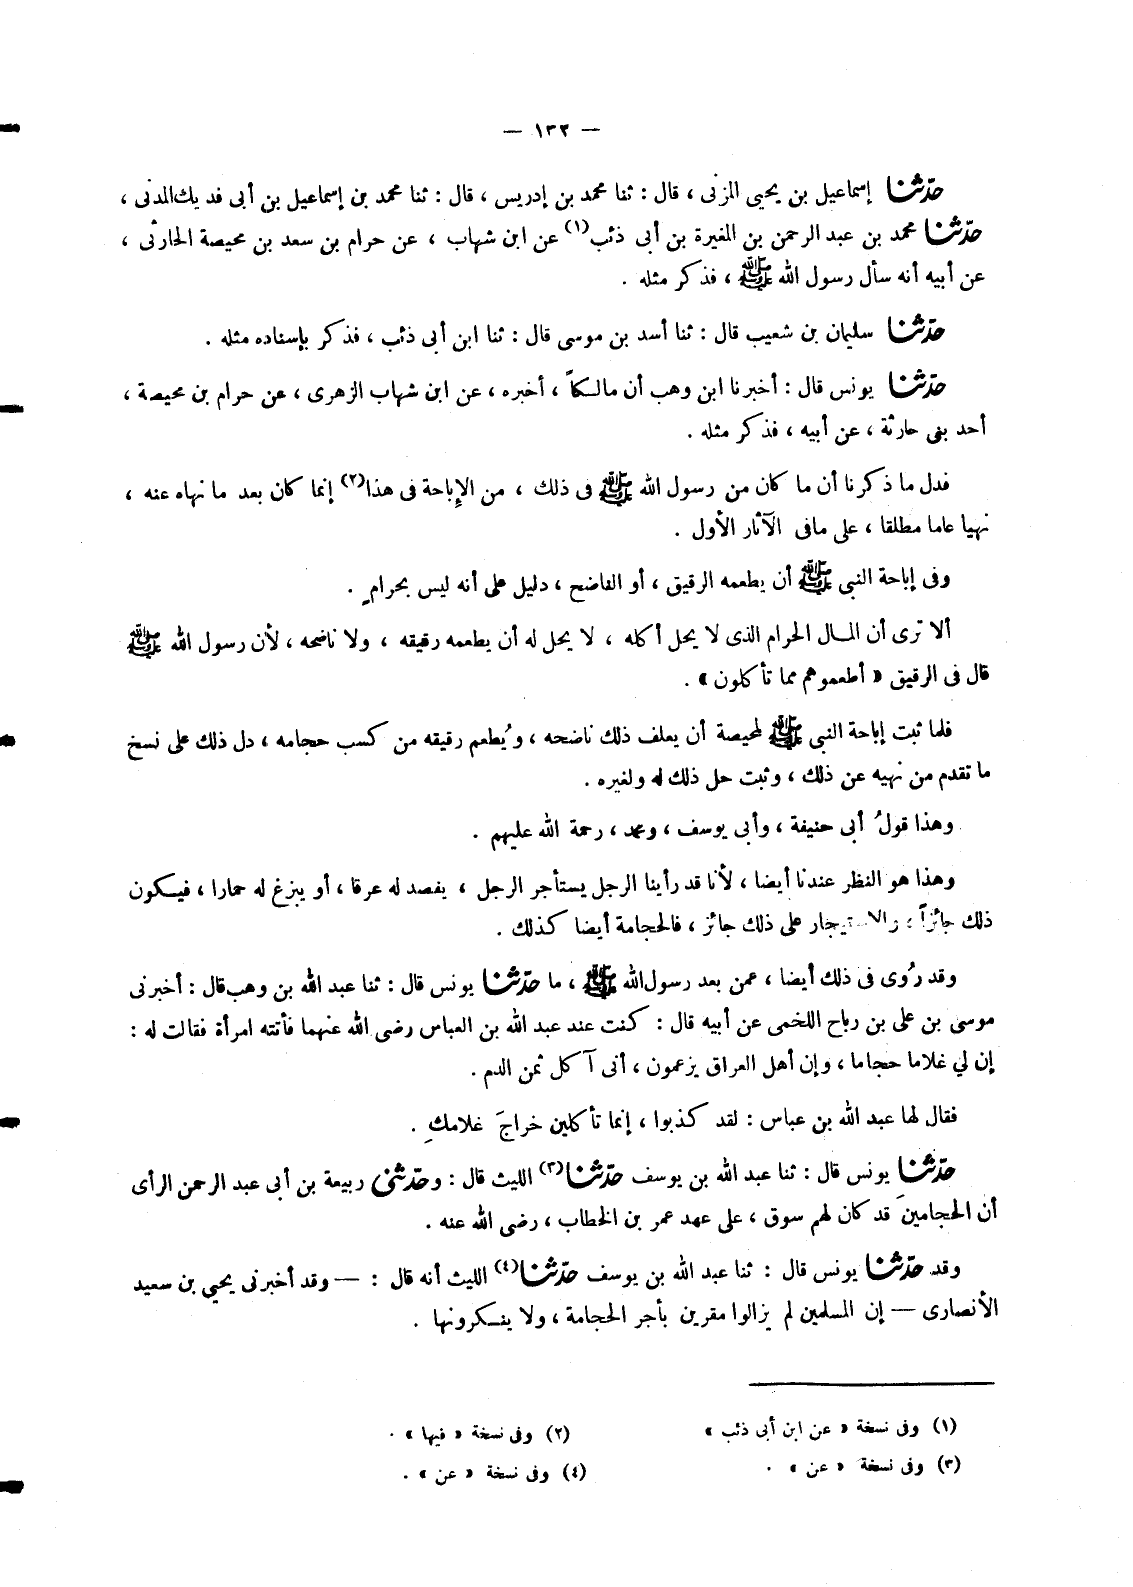 — ١٣٢ —
حدّثنا إسماعيل بن يحيى المزنى ، قال : ثنا محمد بن إدريس ، قال : ثنا محمد بن إسماعيل بن أبى فديك المدنى ،
حدّثنا محمد بن عبد الرحمن بن المغيرة بن أبى ذئب(١) عن ابن شهاب ، عن حرام بن سعد بن محيصة الحارثى ،
عن أبيه أنه سأل رسول الله ﷺ ، فذكر مثله .
حدّثنا سليمان بن شعيب قال : ثنا أسد بن موسى قال : ثنا ابن أبى ذئب ، فذكر بإسناده مثله .
حدّثنا يونس قال : أخبرنا ابن وهب أن مالكاً ، أخبره ، عن ابن شهاب الزهرى ، عن حرام بن محيصة ،
أحد بنى حارثة ، عن أبيه ، فذكر مثله .
فدل ما ذكرنا أن ما كان من رسول الله ﷺ فى ذلك ، من الإباحة فى هذا(٢) إنما كان بعد ما نهاه عنه ،
نهيا عاما مطلقا ، على مافى الآثار الأول .
وفى إباحة النبى ﷺ أن يطعمه الرقيق ، أو الناضح ، دليل على أنه ليس بحرامٍ .
ألا ترى أن المال الحرام الذى لا يحل أكله ، لا يحل له أن يطعمه رقيقه ، ولا ناضحه ، لأن رسول الله ﷺ
قال فى الرقيق « أطعموهم مما تأكلون » .
فلما ثبت إباحة النبى ﷺ لمحيصة أن يعلف ذلك ناضحه ، ويُطعم رقيقه من كسب حجامه ، دل ذلك على نسخ
ما تقدم من نهيه عن ذلك ، وثبت حل ذلك له ولغيره .
وهذا قولُ أبى حنيفة ، وأبى يوسف ، ومحمد ، رحمة الله عليهم .
وهذا هو النظر عندنا أيضا ، لأنا قد رأينا الرجل يستأجر الرجل ، يفصد له عرقا ، أو يبزغ له حمارا ، فيكون
ذلك جائزاً ، والاستيجار على ذلك جائز ، فالحجامة أيضا كذلك .
وقد رُوى فى ذلك أيضا ، عمن بعد رسول الله ﷺ ، ما حدّثنا يونس قال : ثنا عبد الله بن وهب قال : أخبرنى
موسى بن على بن رباح اللخمى عن أبيه قال : كنت عند عبد الله بن العباس رضى الله عنهما فأتته امرأة فقالت له :
إن لي غلاما حجاما ، وإن أهل العراق يزعمون ، أنى آكل ثمن الدم .
فقال لها عبد الله بن عباس : لقد كذبوا ، إنما تأكلين خراجَ غلامكِ .
حدّثنا يونس قال : ثنا عبد الله بن يوسف حدّثنا(٣) الليث قال : وحدّثنى ربيعة بن أبى عبد الرحمن الرأى
أن الحجامينَ قد كان لهم سوق ، على عهد عمر بن الخطاب ، رضى الله عنه .
وقد حدّثنا يونس قال : ثنا عبد الله بن يوسف حدّثنا(٤) الليث أنه قال : — وقد أخبرنى يحيي بن سعيد
الأنصارى — إن المسلمين لم يزالوا مقرين بأجر الحجامة ، ولا ينكرونها .
(١) وفى نسخة « عن ابن أبى ذئب » (٢) وفى نسخة « فيها » .
(٣) وفى نسخة « عن » . (٤) وفى نسخة « عن » .